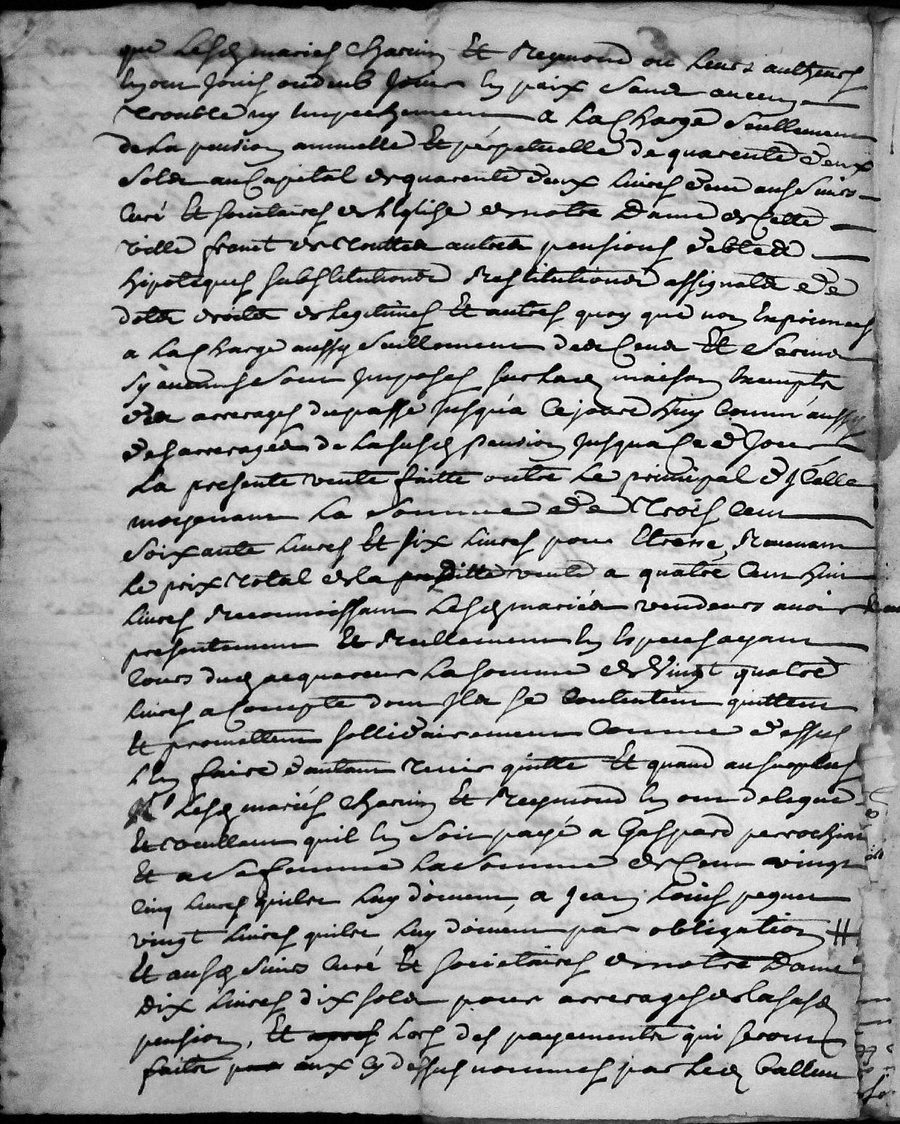 que Lesd mariés Charin Et Reymond ou leurs autheurs
En ont Jouis ou deub Jouir En paix sans aucun
trouble ny Empechement a La Charge seullement
de La pension annuelle Et perpetuelle de quarente deux
solds au Capital de quarente deux livres deue aux sieurs
curé Et societaires de lEglise de notre Dame de Cette
ville franct de touttes autres pensions debtes
hipoteques substitutions Restitutions assignats de
dots droits de legitimes Et autres quoy que non Exprimées
a La Charge aussy seullement des Cens Et Servis
sy aucuns se sont Imposés sur lad maison Exempte
des arrerages du passé Jusqu'a Cejourd'huy comm'aussy
des arrerages de La susd pension Jusqua Ced Jour
La presente vente faitte outre Le principal d'Icelle
moyenant La Somme de Trois Cent
soixante livres Et six livres pour Etrene, Revenant
Le prix total de la preditte vente a quatre Cent huit
livres Reconnoissant Lesd mariés vendeurs avoir
presentement Et Reellement En Especes ayant
Cours dud acquereur La somme de Vingt quatre
livres a Compte dont Ils se Contentent quittent
Et promettent sollidairement Comme dessus
L'En faire d'autant tenir quitte Et quand au surplus
Lesd mariés Charin Et Reymond En ont delegué
Et veullent quil En soit payé a Gaspard perrochin
Et a Sa femme La Somme de Cent vingt
cinq livres quils luy doivent, a Jean Louis pequet
vingt livres quils luy doivent par obligation #
Et aux d Sieurs Curé Et Societaires de notre Dame
Dix livres dix solds pour arrerages de la susd
pension, Et Lors des payements qui seront
faits aux Cy dessus nommés par Led Vallent